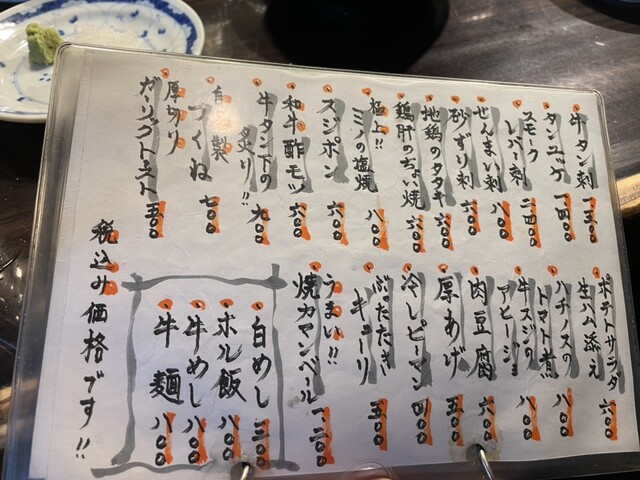 牛タン刺 一五〇〇
タンユッケ 一四〇〇
スモーク
レバー刺 二四〇〇
せんまい刺 八〇〇
砂ずり刺 六〇〇
地鶏のタタキ 六〇〇
鶏肝のちょい焼 六〇〇
極上!!
ミノの塩焼 八〇〇
スジポン 六〇〇
和牛酢モツ 六〇〇
牛タン下の
炙り!! 九〇〇
自家製
つくね 七〇〇
厚切り
ガーリックトースト 五〇〇
ポテトサラダ
生ハム添え 六〇〇
ハチノスの
トマト煮 八〇〇
牛スジの
アヒージョ 八〇〇
肉豆腐 六〇〇
厚あげ 五〇〇
冷しピーマン 四〇〇
ぶったたき
キューリ 五〇〇
うまい!!
焼カマンベール 一、二〇〇
白めし 三〇〇
ホル飯 八〇〇
牛めし 八〇〇
牛麺 八〇〇
税込み価格です!!